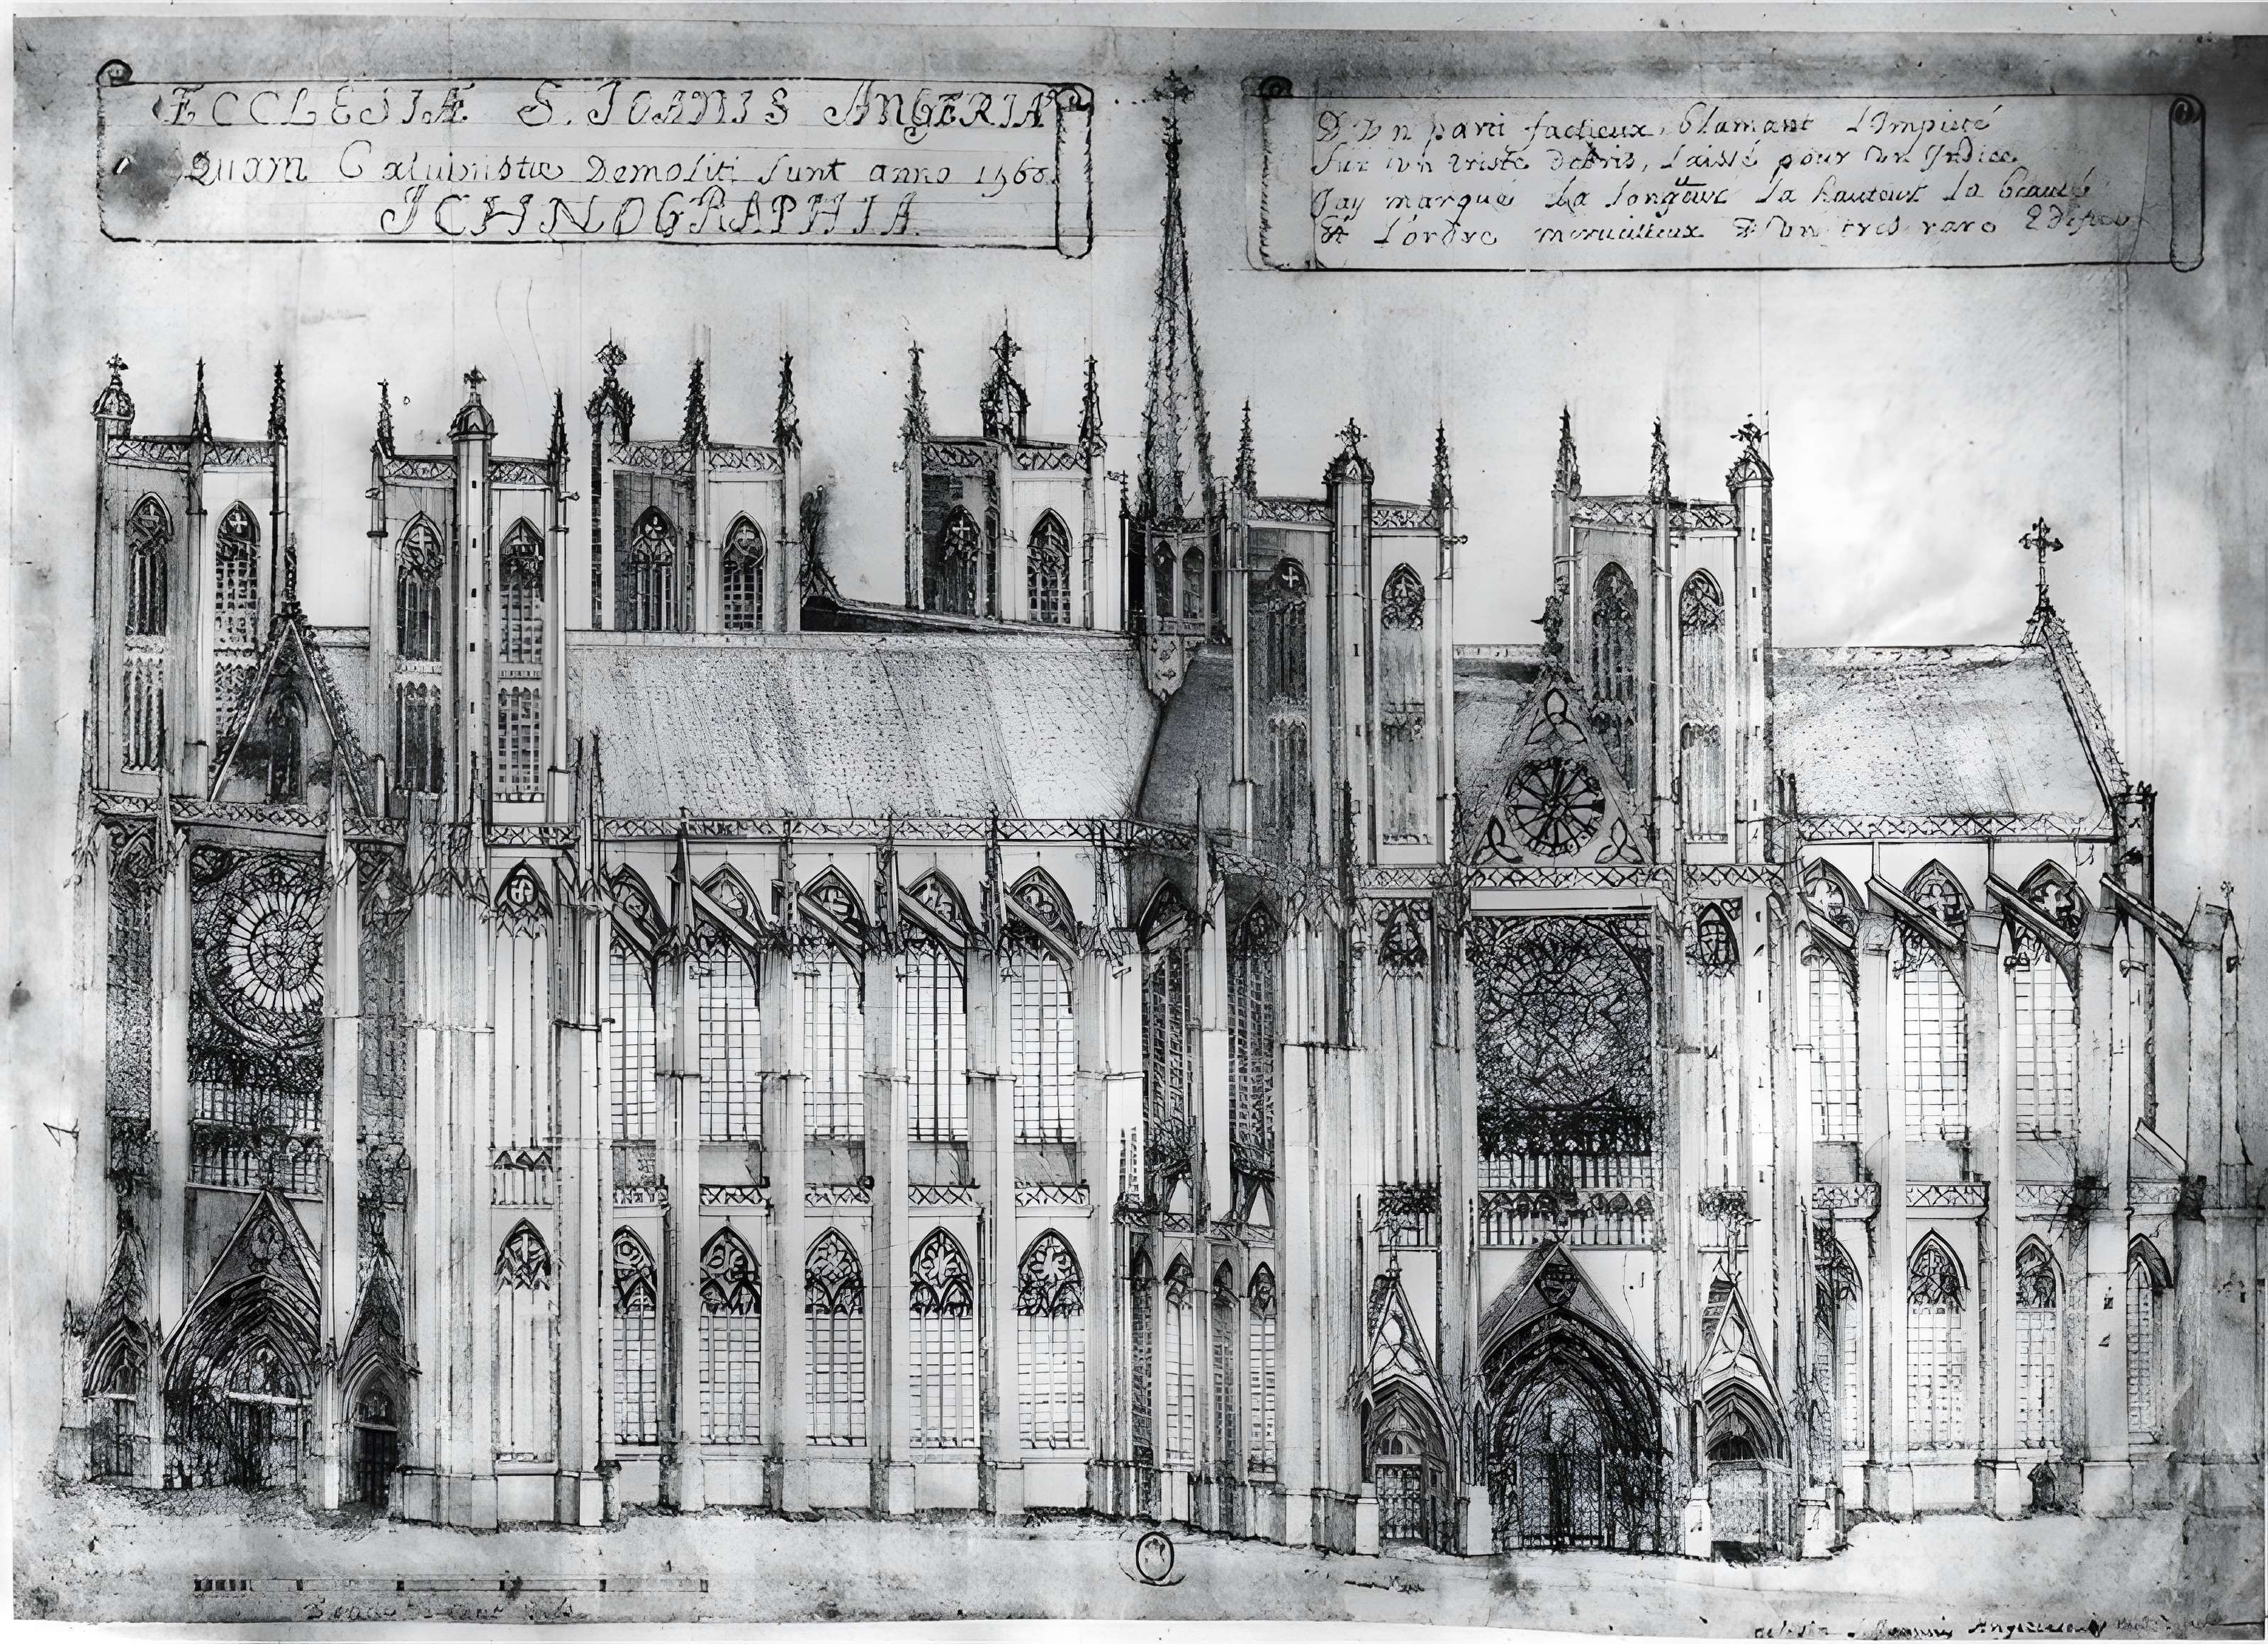 ECCLESIÆ S. IOANIS ANGERIA
Quam Caluinistæ Demoliti sunt anno 1568.
ICHNOGRAPHIA.
D'Vn parti factieux, blamant L'Impieté
Sur Vn triste Debris, laissé pour Vn Indice
Jay marqué La longueur La hauteur la beauté
Et L'ordre merueilleux D'Vn tres rare Edifice